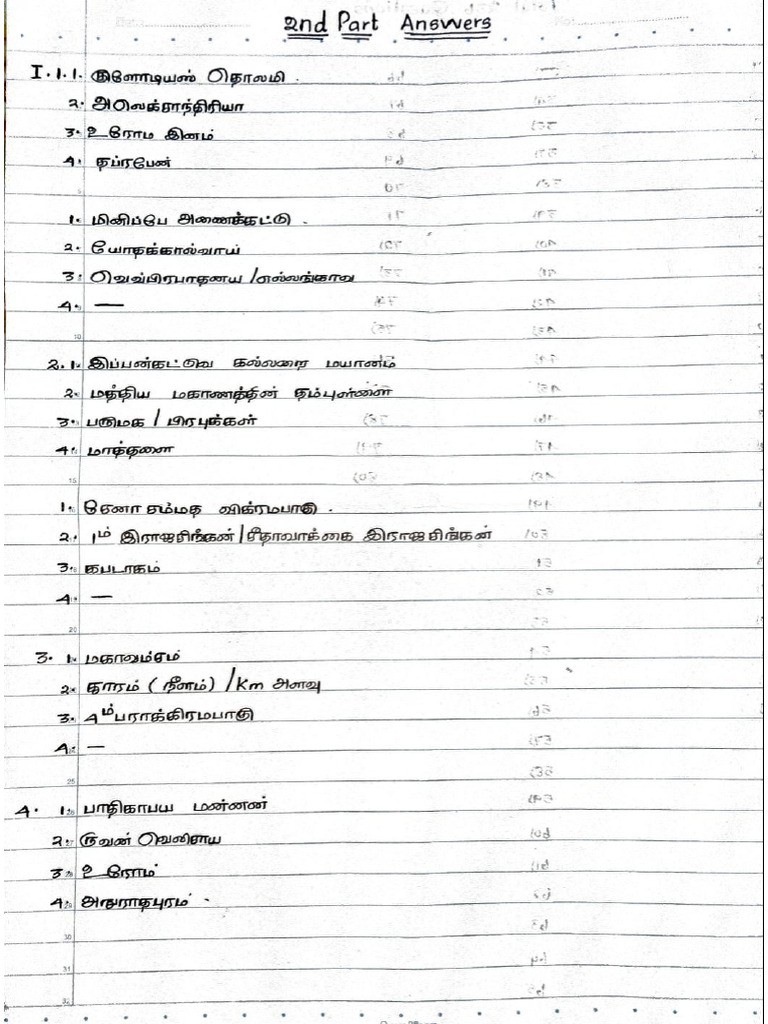 2nd Part Answers
I.1.1. கிளோடியஸ் தொலமி.
2. அலெக்சாந்திரியா
3. உரோம இனம்
4. தப்ரபேன்
1. மினிப்பே அணைக்கட்டு.
2. யோதக்கால்வாய்
3. வெவ்பிரபாதனய / எல்லங்காவ
4. —
2.1. இப்பன்கட்டுவ கல்லறை மயானம்
2. மத்திய மகாணத்தின் தம்புள்ளை
3. பருமக / பிரபுக்கள்
4. மாத்தளை
1. சேனா சம்மத விக்ரமபாகு.
2. 1ம் இராஜசிங்கன் / சீதாவாக்கை இராஜசிங்கன்
3. கபடாகம்
4. —
3. 1. மகாவம்சம்
2. காரம் (நீளம்) / Km அளவு
3. 4ம் பராக்கிரமபாகு
4. —
4. 1. பாதிகாபய மன்னன்
2. ருவன் வெளிசாய
3. உரோம்
4. அநுராதபுரம்.